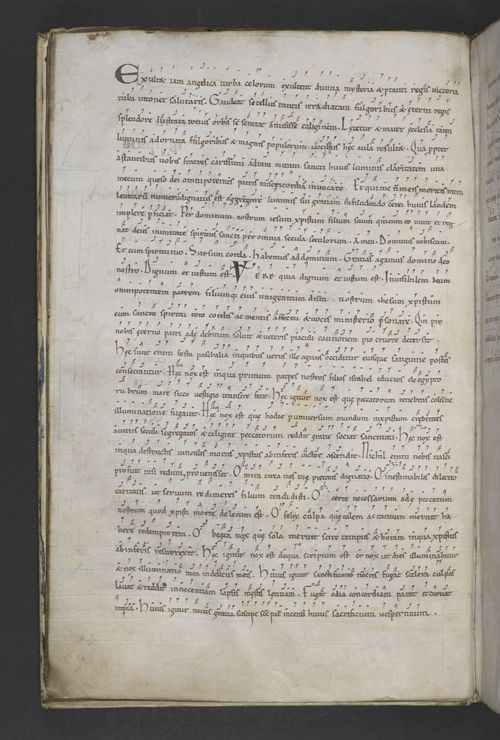 Exultet iam angelica turba celorum exultent divina mysteria & p tanti regis victoria
tuba intonet salutaris. Gaudeat se tellus tantis irradiatam fulgoribus & eterni regis
splendore illustrata totius orbis se sentiat amisisse caliginem. Letetur & mater ecclesia tanti
luminis adornata fulgoribus & magnis populorum vocibus hec aula resultet. Qua ppter
astantibus vobis fratres carissimi ad tam miram sancti huius luminis claritatem una
mecum queso dei omnipotentis misericordia invocate. Et qui me non meis meritis
numero dignatus est aggregare luminis sui gratiam infundendo cerei huius laudem
implere . Per dominum nostrum iesum xpistum filium suum qui secum vivit et reg
nat deus in unitate spiritus sancti per omnia secula seculorum. Amen. Dominus vobiscum.
Et cum spiritu tuo. Sursum corda. Habemus ad dominum. Gratias agamus domino deo
nostro. Dignum et iustum est. Vere qua dignum et iustum est. Invisibilem deum
omnipotentem patrem filiumque eius unigenitum dnm nostrum ihesum xpistum
cum sancto spiritu toto cordis ac mentis affectu & vocis ministerio psonare. Qui pro
nobis eterno patri ade debitum solvit & veteris piaculi cautionem pio cruore detersit.
Hec sunt enim festa paschalia in quibus verus ille agnus occiditur eiusque sanguine postes
consecrantur. Hec nox est in qua primum patres nostros filios israhel eductos de egypto
rubrum mare sicco vestigio transire fecit. Hec igitur nox est que peccatorum tenebras colu
illuminatione fugavit. Hec nox est que hodie p universum mundum in xpistum credentes
a vitiis seculi segregatos & caligine peccatorum reddit gratie sociat sanctitati. Hec nox est
in qua destructis vinculis mortis xpistus ab inferis victor ascendit. Nichil enim nobis nasci
profuit nisi redimi profuisset. O mira circa nos tue pietatis dignatio. O inestimabilis dilectio
caritatis ut servum redimeres filium tradidisti. O certe necessarium ade peccatum
nostrum quod xpisti morte deletum est. O felix culpa que talem ac tantum meruit ha
bere redemptorem. O beata nox que sola meruit scire tempus & horam in qua xpistus
ab inferis resurrexit. Hec igitur nox est de qua scriptum est et nox ut dies illuminabitur
& nox illuminatio mea in deliciis meis. Huius igitur sanctificatio noctis fugat scelera culpas
lavat & reddit innocentiam lapsis mestis letitiam. Fugat odia concordiam parat et curvat
impia. Huius igitur noctis gratia suscipe sce pat incensi huius sacrificium vespertinum.